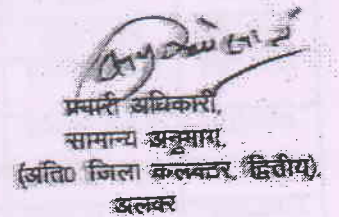 प्रभारी अधिकारी,
सामान्य अनुभाग,
(अति0 जिला कलक्टर, द्वितीय),
अलवर